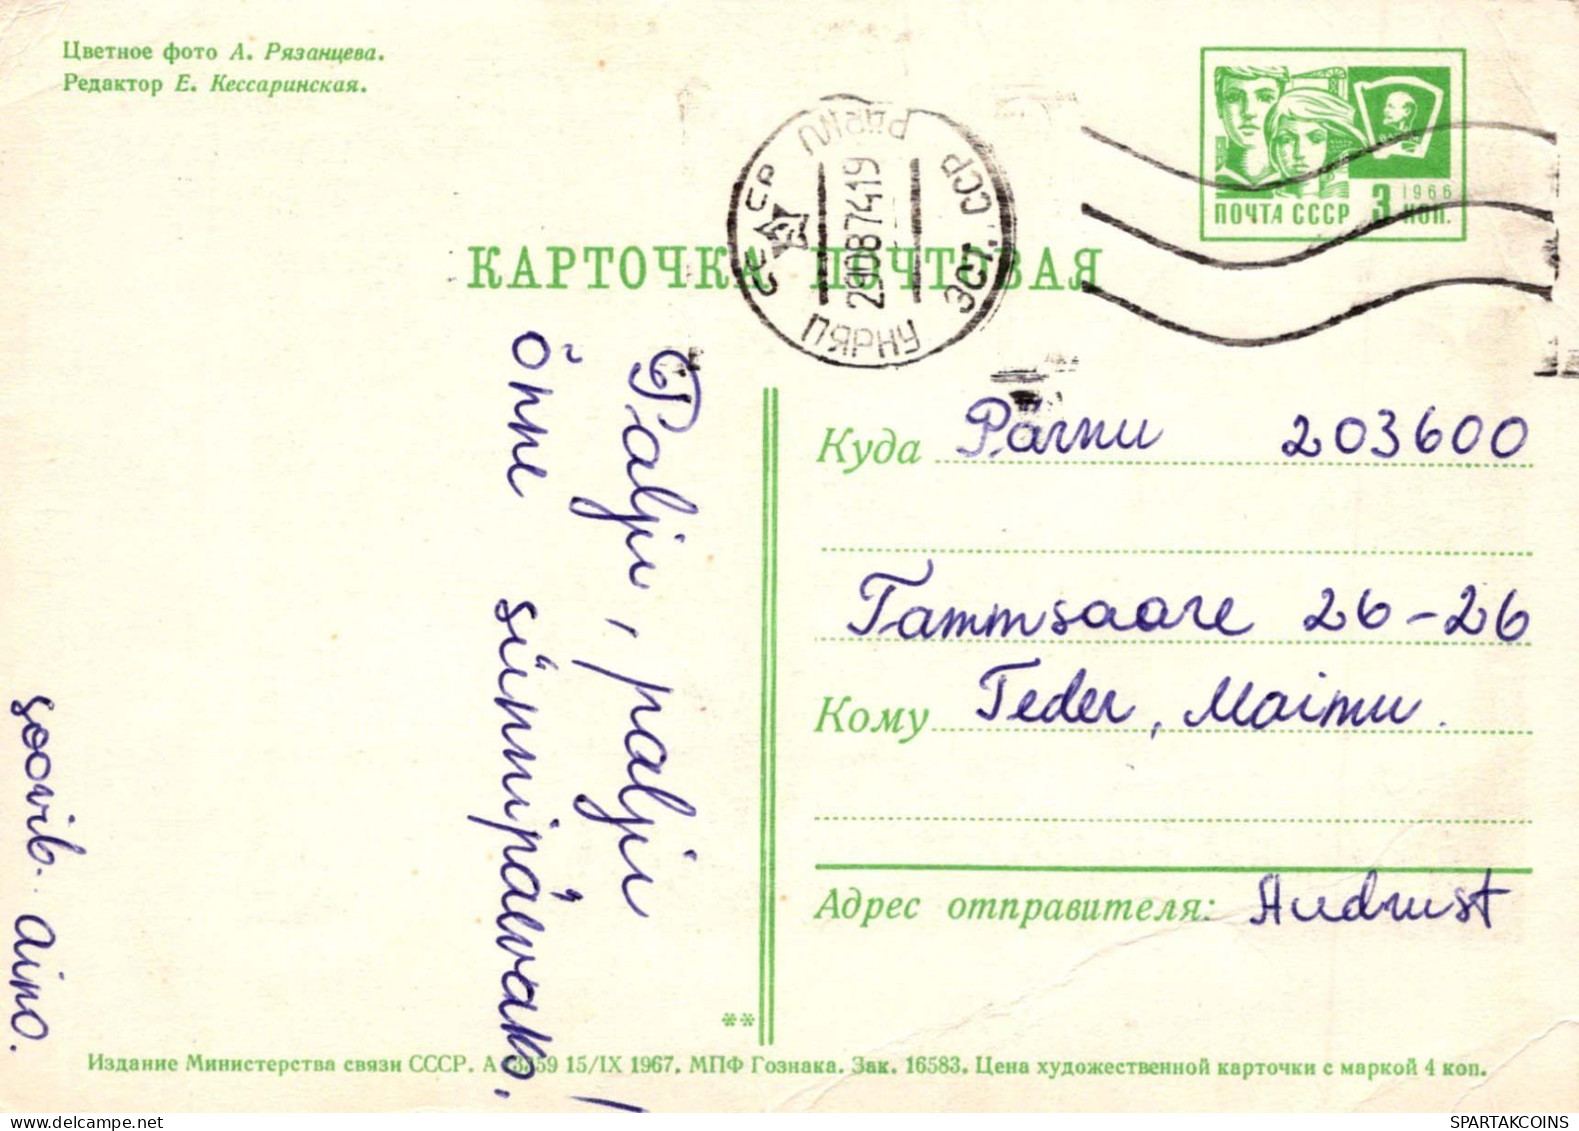 Цветное фото А. Рязанцева.
Редактор Е. Кессаринская.
ПОЧТА СССР 3 КОП.
1966
PÄRNU
СССР
29087419
ЭСТ. ССР
ПЯРНУ
КАРТОЧКА ПОЧТОВАЯ
Palju, palju
õnne sünnipäevaks!
soovib. Aino.
Куда Pärnu 203600
Tammsaare 26-26
Кому Teder, Maimu.
Адрес отправителя:
**
Издание Министерства связи СССР. А 15/IX 1967. МПФ Гознака. Зак. 16583. Цена художественной карточки с маркой 4 коп.
hippostcard.com
SPARTAKCOINS